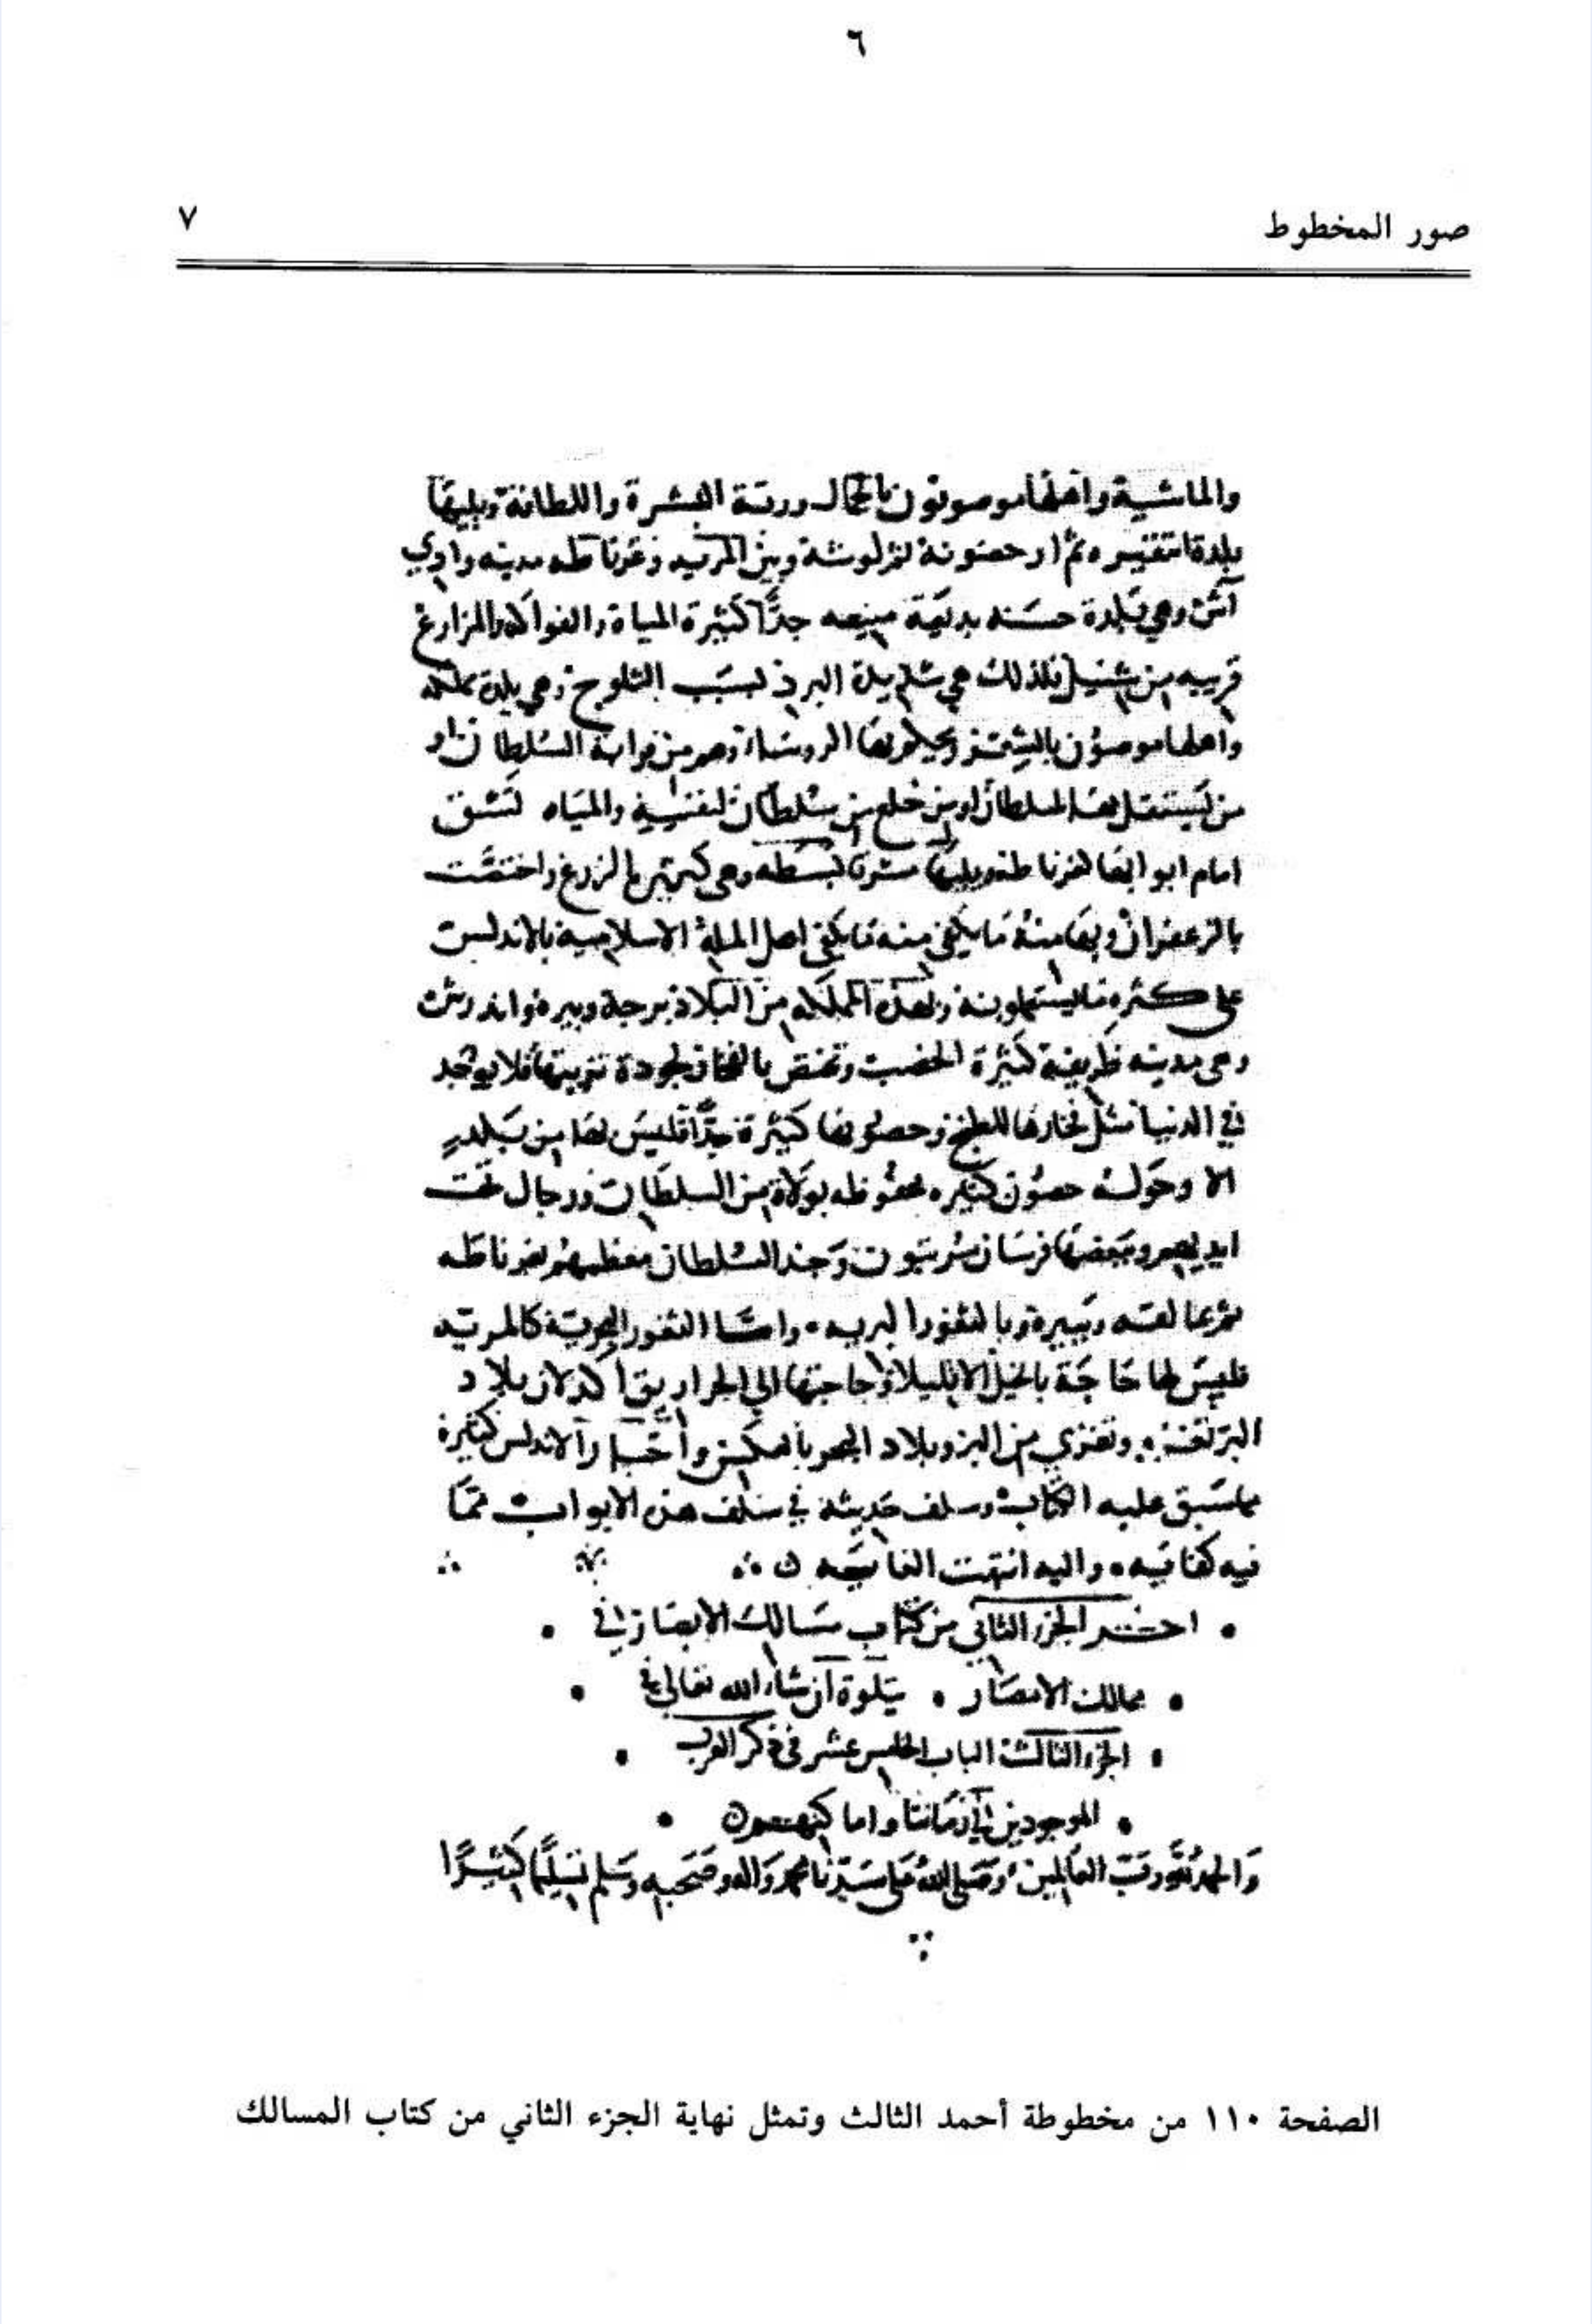 ٦
صور المخطوط
٧
والماشية واهلها موصوفون بالجمال ورقة البشرة واللطافة ويليها
بلدة انتقيره ثم ارحصونة ثم لوشة وبين المريه وغرناطه مدينه وادي
آش وهي بلدة حسنه بديعة منيعه جدًّا كثيرة المياة والفواكه والمزارع
قريبه من شنيل فلذلك هي شديدة البرد لسبب الثلوج وهي بلدة مملكه
واهلها موصوفون بالشعر ويحلو بها الروساء وهم من قرابة السلطان او
من يستقل بها السلطان او من خلع من سلطان لنفسه والمياه تشق
امام ابوابها كغرناطه ويليها شرقا بسطه وهي كثيرة الزرع واختصت
بالزعفران وبها منه ما يكفي منه ما يكفي اهل الملة الاسلامية بالاندلس
على كثره ما يستعملونه ولهذه المملكه من البلاد برجة وبيرة واندرش
وهى مدينه ظريفة كثيرة الخصب وتختص بالفخار لجودة تربتها فلا يوجد
في الدنيا مثل فخارها للطبخ وحصونها كثيرة جدًّا فليس بها من بلد
الا وحوله حصون كثيره محفوظه بولاة من السلطان ورجال تحت
ايديهم وبعضها فرسان مرتبون وجند السلطان معظمهم بغرناطه
ثم بمالقه وبيرة وبالثغور البريه • واما الثغور البحرية كالمريه
فليس لها حاجة بالخيل الا قليلا وحاجتها الى الجراريق اكد لان بلاد
البر تغزي وتغزي من البر وبلاد البحر بالعكس واخبار الاندلس كثيرة
مما سبق عليه الكتاب وسلف حديثه في سلف هذه الابواب مما
فيه كفايه • واليه انتهت الغايه
• اخر الجزء الثاني من كتاب مسالك الابصار في •
• ممالك الامصار • يتلوة ان شاء الله تعالى في •
• الجزء الثالث الباب الخامس عشر في ذكر العرب •
• الموجودين في زماننا واماكنهم •
وَالحمد لله ربّ العَالمين وَصَلى الله عَلى سَيّدنا محمد وَاله وصَحبه وسَلم تسليمًا كَثيرًا
الصفحة ١١٠ من مخطوطة أحمد الثالث وتمثل نهاية الجزء الثاني من كتاب المسالك